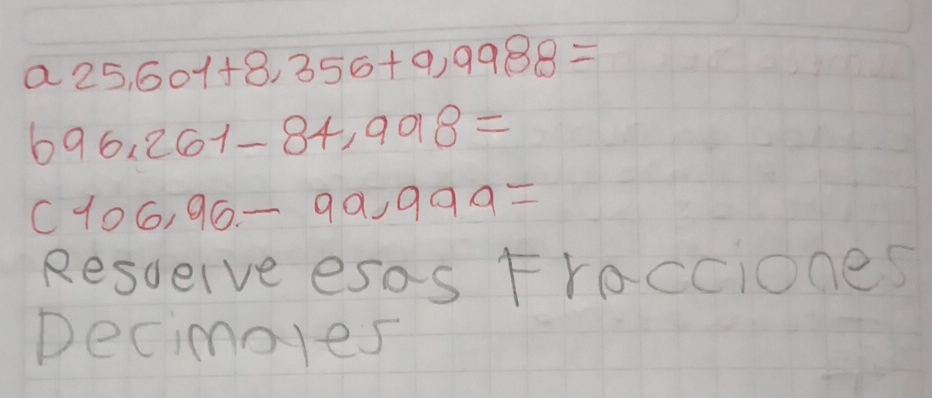 a 25,601+8,356+9,9988=
b 96,261-84,998=
c 106,96.- 99,999=
Resuelve esas Fracciones
Decimales